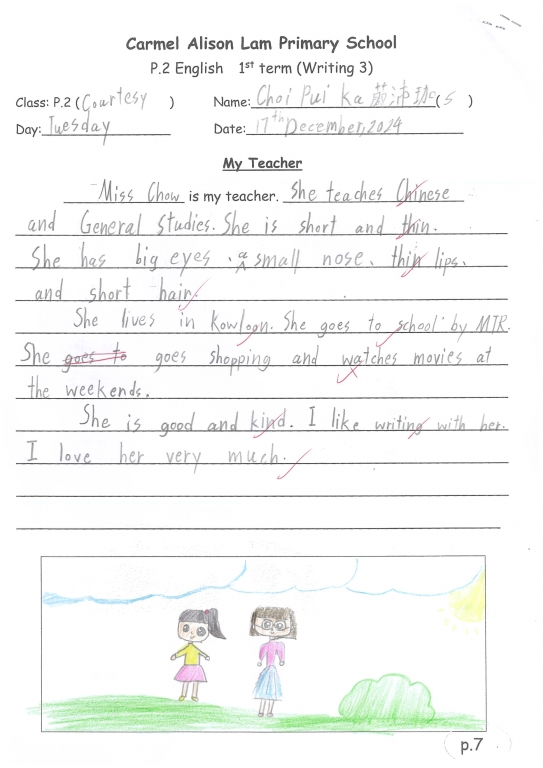 Carmel Alison Lam Primary School
P.2 English 1st term (Writing 3)
Class: P.2 (Courtesy ) Name: Choi Pui Ka (5 )
Day: Tuesday Date: 17th December, 2024
My Teacher
Miss Chow is my teacher. She teaches Chinese
and General Studies. She is short and thin.
She has big eyes , a small nose, thin lips,
and short hair.
She lives in Kowloon. She goes to school by MTR.
She goes to goes shopping and watches movies at
the weekends.
She is good and kind. I like writing with her.
I love her very much.
p.7